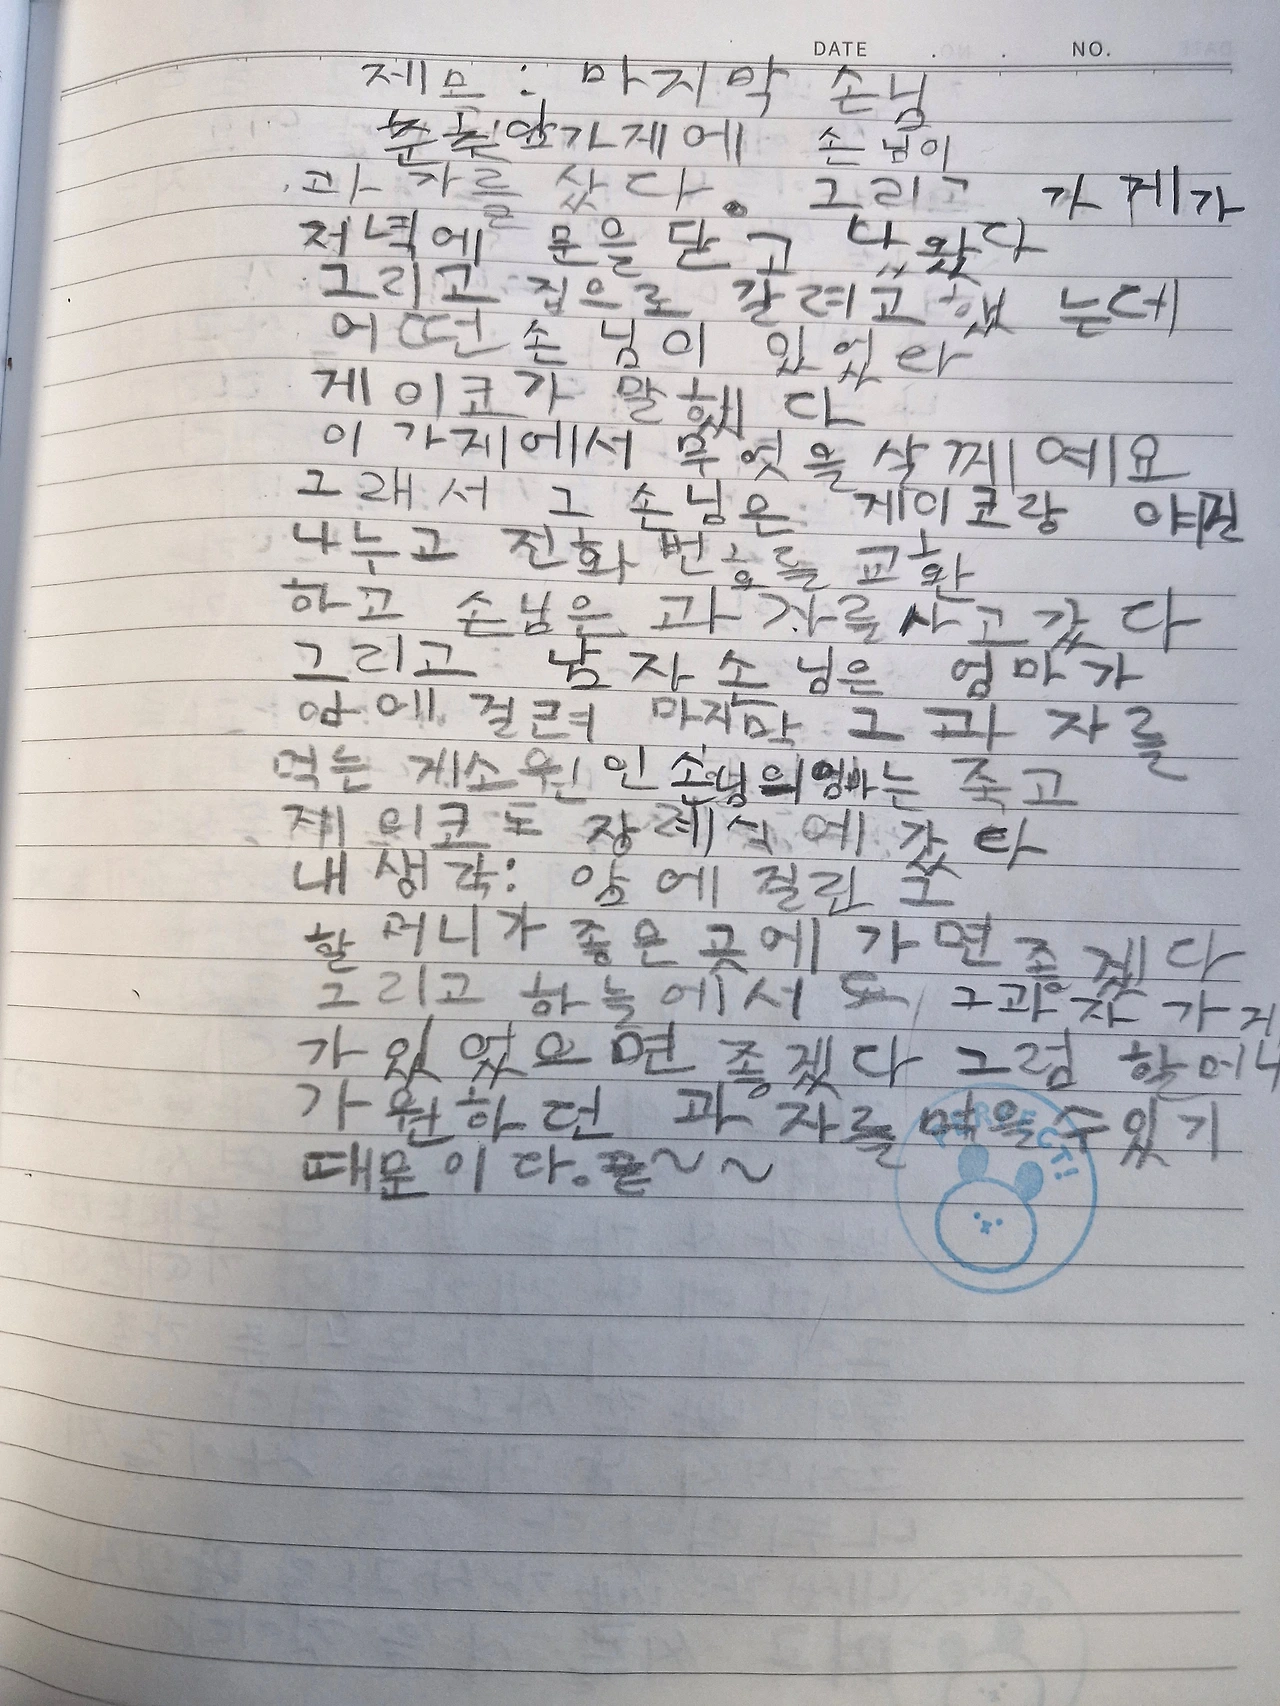 DATE . . NO.
제모 : 마지막 손님
가제에 손님이
과자를 샀다. 그리고 가게가
저녁에 문을 닫고 나왔다
그리고 집으로 갈려고 했는데
어떤 손님이 있었다
게이코가 말했다
이 가게에서 무엇을 살께예요
그래서 그 손님은 게이코랑 야길
나누고 전화 번호를 교환
하고 손님은 과자를 사고 갔다
그리고 남자 손님은 엄마가
암에 걸려 마지막 그 과자를
먹는 게 소원인 손님의 엄마는 죽고
게이코도 장례식에 갔다
내 생각: 암에 걸린 그
할머니가 좋은 곳에 가면 좋겠다
그리고 하늘에서도 그 과자 가게
가 있었으면 좋겠다 그럼 할머니
가 원하던 과자를 먹을 수 있기
때문이다. 끝~ ~
PERFECT!